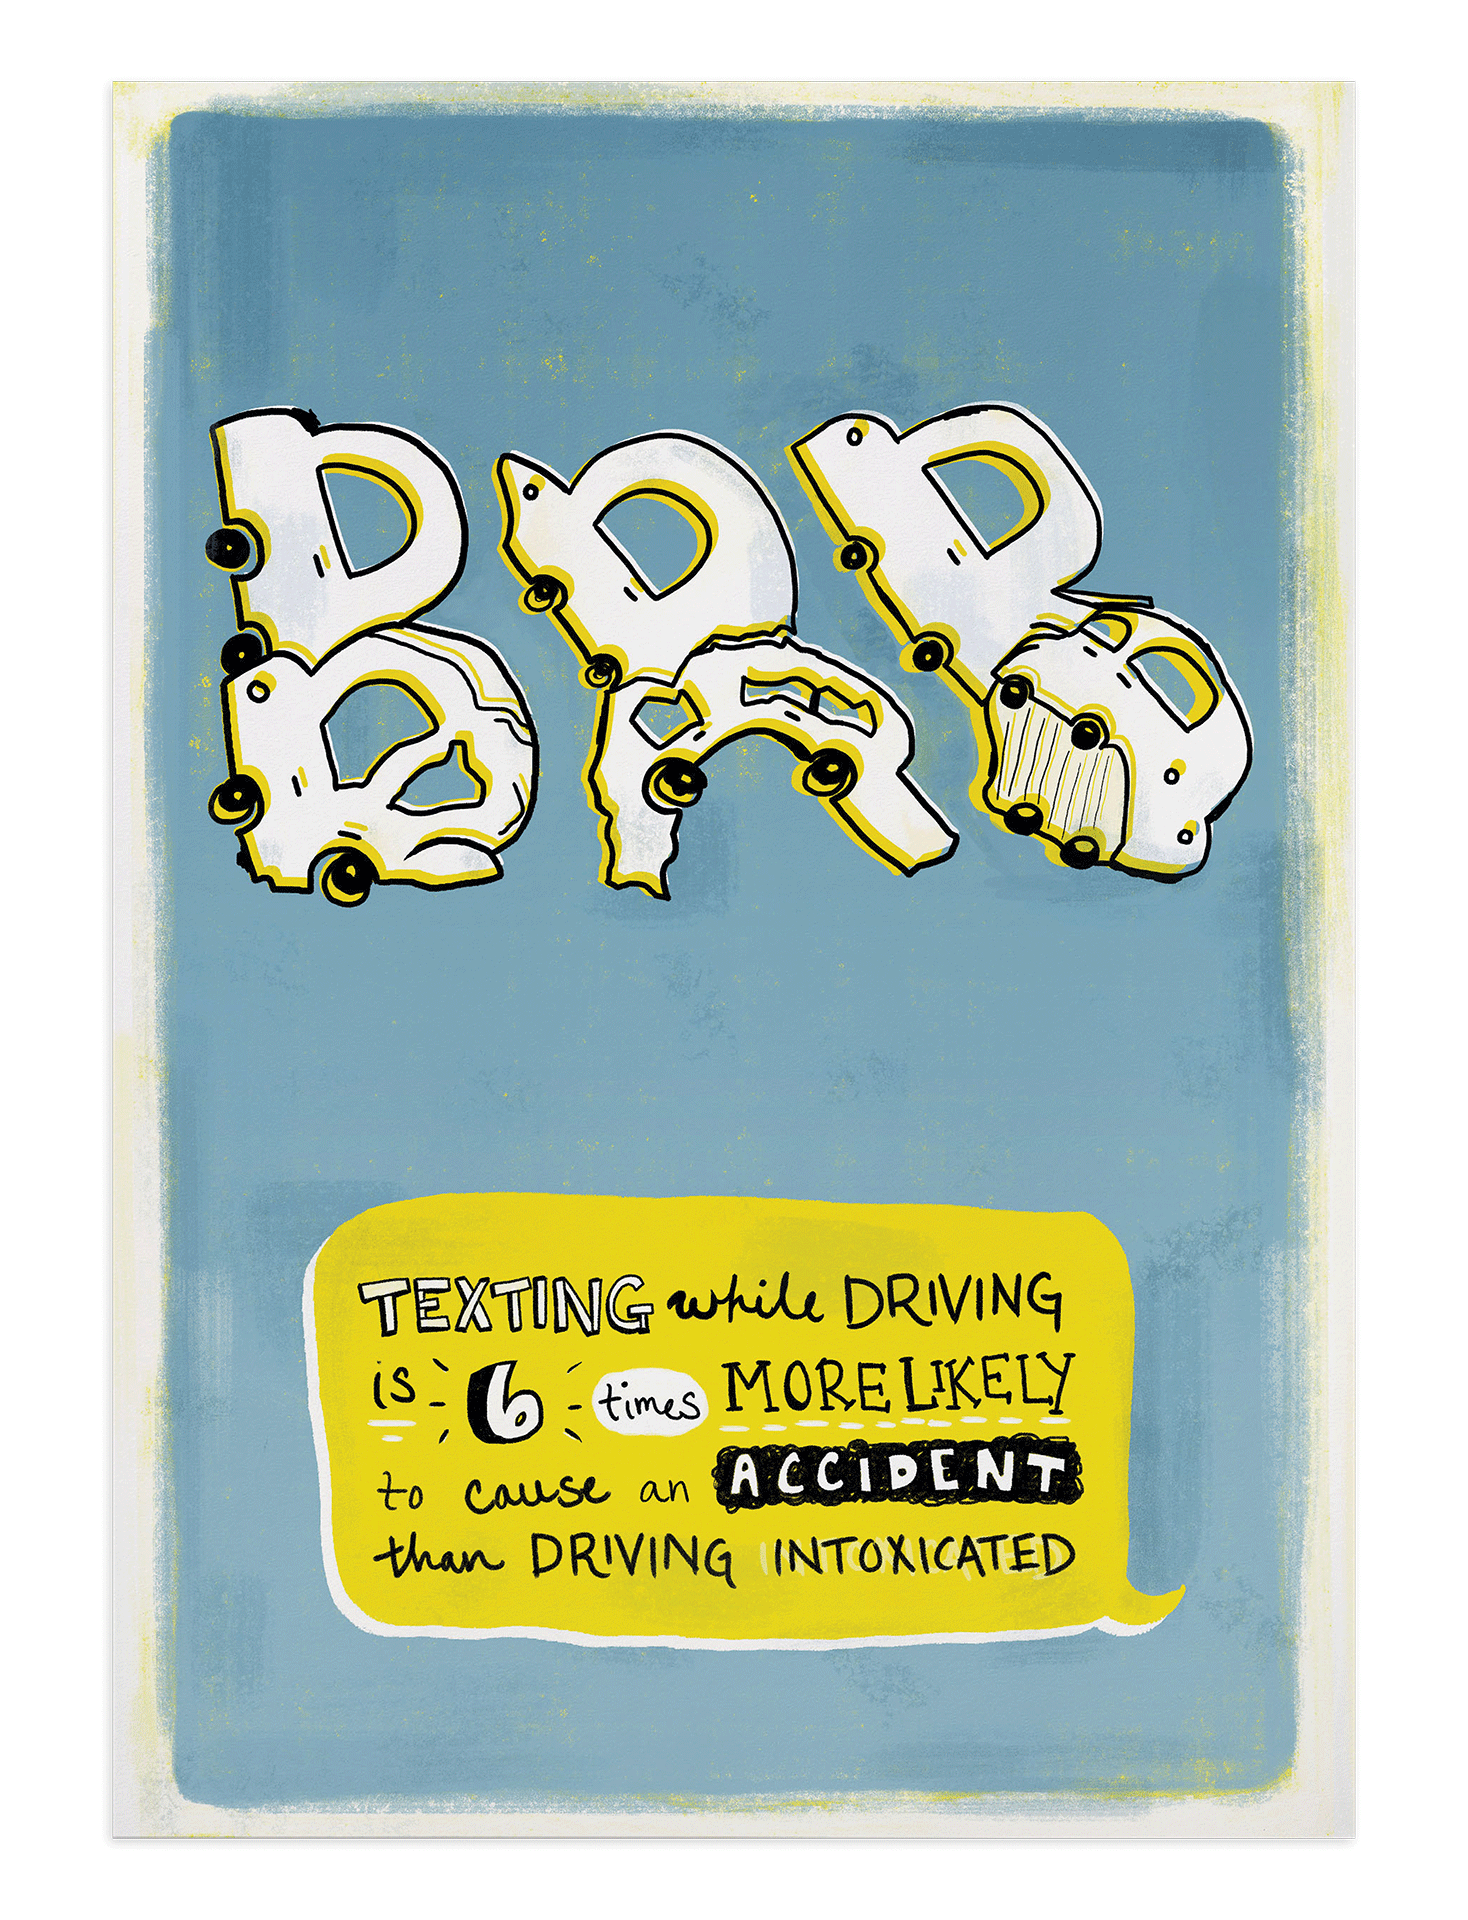 BRB
TEXTING while DRIVING
is 6 times MORE LIKELY
to cause an ACCIDENT
than DRIVING INTOXICATED